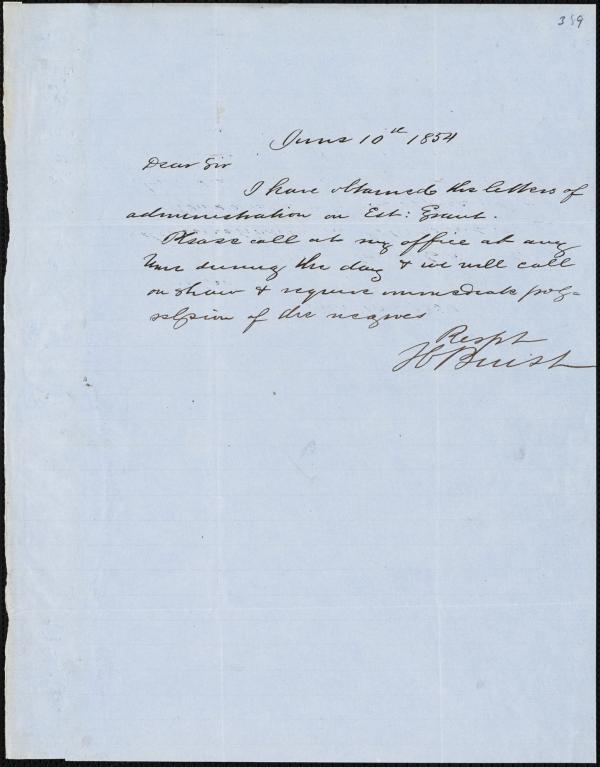 359
June 10th 1854
Dear Sir
I have obtained the letters of
administration on Est: Grant.
Please call at my office at any
time during the day & we will call
on Shaw & require immediate pos=
session of the negroes
Respt
H Buist